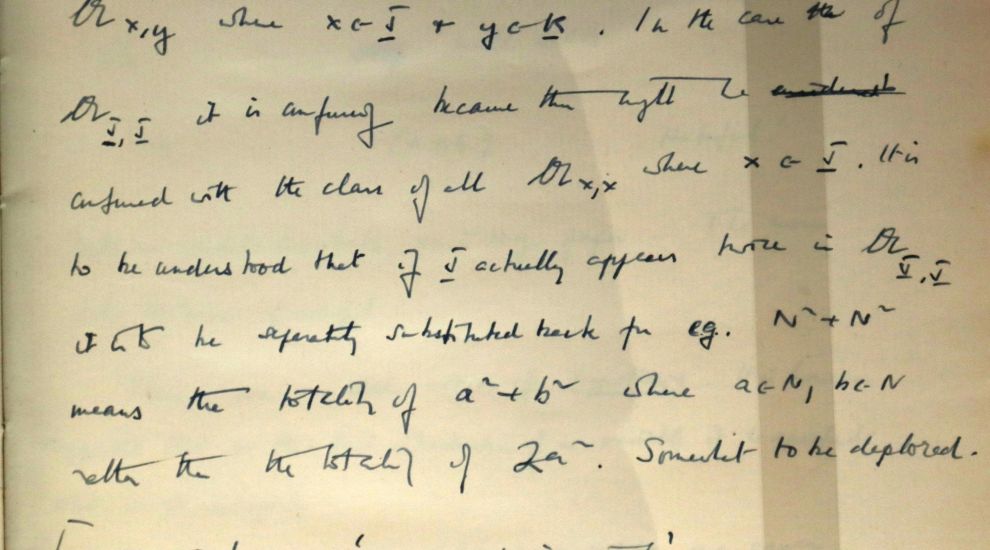 𝔄 x,y where x ∈ J + y ∈ K . In the case of
𝔄 J, J it is confusing because this might be
confused with the class of all 𝔄 x,x where x ∈ J . It is
to be understood that if J actually appears twice in 𝔄 J, J
it is to be separately substituted back for eg. N² + N²
means the totality of a² + b² where a ∈ N, b ∈ N
rather than the totality of 2a². Somewhat to be deplored.